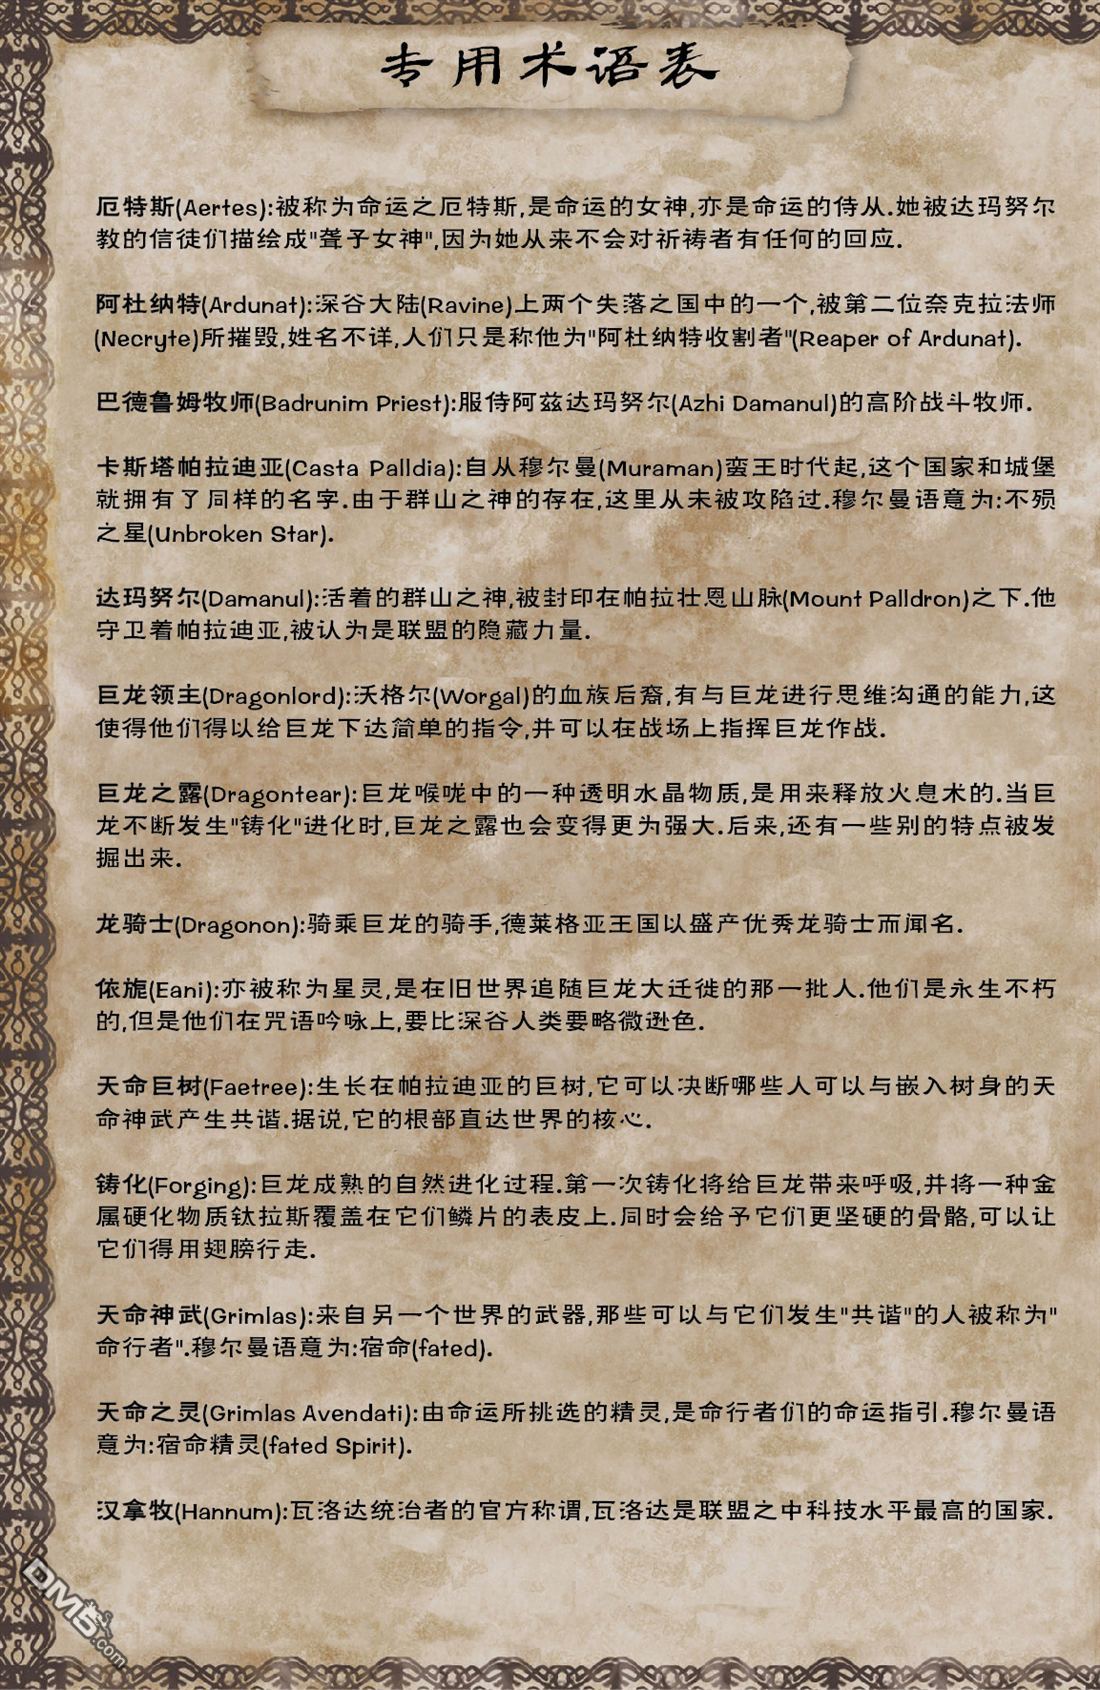 专用术语表
厄特斯(Aertes):被称为命运之厄特斯,是命运的女神,亦是命运的侍从.她被达玛努尔
教的信徒们描绘成"聋子女神",因为她从来不会对祈祷者有任何的回应.
阿杜纳特(Ardunat):深谷大陆(Ravine)上两个失落之国中的一个,被第二位奈克拉法师
(Necryte)所摧毁,姓名不详,人们只是称他为"阿杜纳特收割者"(Reaper of Ardunat).
巴德鲁姆牧师(Badrunim Priest):服侍阿兹达玛努尔(Azhi Damanul)的高阶战斗牧师.
卡斯塔帕拉迪亚(Casta Palldia):自从穆尔曼(Muraman)蛮王时代起,这个国家和城堡
就拥有了同样的名字.由于群山之神的存在,这里从未被攻陷过.穆尔曼语意为:不殒
之星(Unbroken Star).
达玛努尔(Damanul):活着的群山之神,被封印在帕拉壮恩山脉(Mount Palldron)之下.他
守卫着帕拉迪亚,被认为是联盟的隐藏力量.
巨龙领主(Dragonlord):沃格尔(Worgal)的血族后裔,有与巨龙进行思维沟通的能力,这
使得他们得以给巨龙下达简单的指令,并可以在战场上指挥巨龙作战.
巨龙之露(Dragontear):巨龙喉咙中的一种透明水晶物质,是用来释放火息术的.当巨
龙不断发生"铸化"进化时,巨龙之露也会变得更为强大.后来,还有一些别的特点被发
掘出来.
龙骑士(Dragonon):骑乘巨龙的骑手,德莱格亚王国以盛产优秀龙骑士而闻名.
依旎(Eani):亦被称为星灵,是在旧世界追随巨龙大迁徙的那一批人.他们是永生不朽
的,但是他们在咒语吟咏上,要比深谷人类要略微逊色.
天命巨树(Faetree):生长在帕拉迪亚的巨树,它可以决断哪些人可以与嵌入树身的天
命神武产生共谐.据说,它的根部直达世界的核心.
铸化(Forging):巨龙成熟的自然进化过程.第一次铸化将给巨龙带来呼吸,并将一种金
属硬化物质钛拉斯覆盖在它们鳞片的表皮上.同时会给予它们更坚硬的骨骼,可以让
它们得用翅膀行走.
天命神武(Grimlas):来自另一个世界的武器,那些可以与它们发生"共谐"的人被称为"
命行者".穆尔曼语意为:宿命(fated).
天命之灵(Grimlas Avendati):由命运所挑选的精灵,是命行者们的命运指引.穆尔曼语
意为:宿命精灵(fated Spirit).
汉拿牧(Hannum):瓦洛达统治者的官方称谓,瓦洛达是联盟之中科技水平最高的国家.
DM5.com